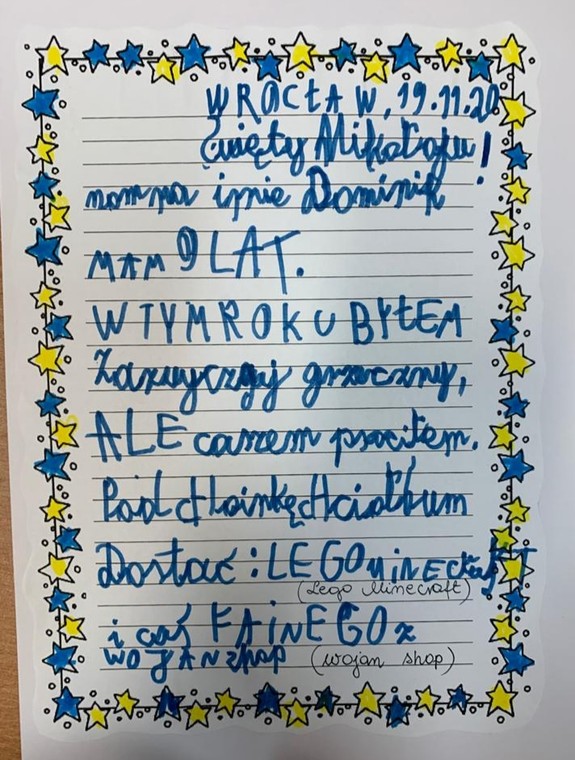 WROCŁAW, 19.11.20
Święty Mikołaju!
mam na imie Dominik
MAM 9 LAT.
W TYM ROKU BYŁEM
Zazwyczaj grzeczny,
ALE czasem psociłem.
Pod cHoinkę Hciałbym
Dostać: LEGO MiNECRafT
(Lego Minecraft)
i coś FAiNEGO z
WOJANshop (wojan shop)